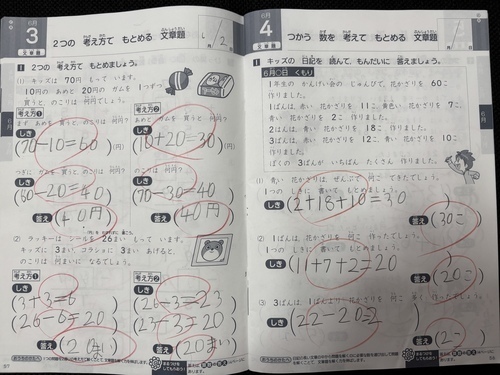 6月
3
文章題
2つの 考え方で もとめる 文章題
月
2
日
1 2つの 考え方で もとめましょう。
(1) キッズは 70円 もって います。
10円の あめと 20円の ガムを 1つずつ
買うと、のこりは 何円でしょう。
考え方①
まず あめを 買うと、のこりは 何円?
しき
(70-10=60)(円)
つぎに ガムを 買うと、のこりは 何円?
しき
(60-20=40)
答え
(40円)
考え方②
あめと ガムを 買うと 何円?
しき
(10+20=30)(円)
のこりは 何円?
しき
(70-30=40)
答え
(40円)
(2) ラッキーは シールを 26まい もって います。
キッズに 3まい、コラショに 3まい あげると、
のこりは 何まいに なるでしょう。
考え方①
しき
(3+3=6)
(26-6=20)
答え
(20まい)
考え方②
しき
(26-3=23)
(23-3=20)
答え
(20まい)
6月
4
文章題
つかう 数を 考えて もとめる 文章題
月
日
1 キッズの 日記を 読んで、もんだいに 答えましょう。
6月〇日 くもり
1年生の かんげい会の じゅんびで、花かざりを 60こ
作りました。
1ぱんは、赤い 花かざりを 11こ、黄色い 花かざりを 7こ、
青い 花かざりを 2こ 作りました。
2はんは、青い 花かざりを 18こ 作りました。
3ぱんは、赤い 花かざりを 12こ、青い 花かざりを 10こ
作りました。
ぼくの 3ぱんが いちばん たくさん 作りました。
(1) 青い 花かざりは、ぜんぶで 何こ できたでしょう。
1つの しきに 書いて もとめましょう。
しき
(2+18+10=30)
答え
(30こ)
(2) 1ぱんは、花かざりを 何こ 作ったでしょう。
1つの しきに 書いて もとめましょう。
しき
(11+7+2=20)
答え
(20こ)
(3) 3ぱんは、1ぱんより 花かざりを 何こ 多く 作ったでしょう。
しき
(22-20=2)
答え
(2こ)